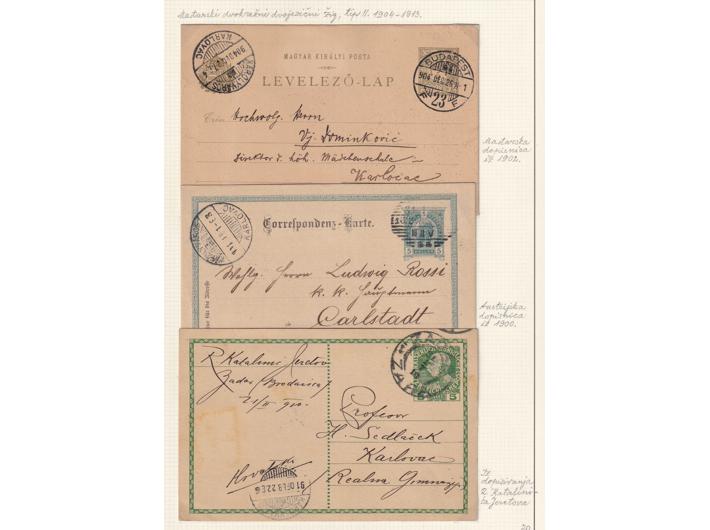 Mađarski dvokružni dvojezični žig, tip II. 1904-1913.
KÁROLYVÁROS
KARLOVAC
MAGYAR KIRÁLYI POSTA
LEVELEZŐ-LAP
BUDAPEST
23
Hochwolg. Herrn
Vj. Dominković
Direktor d. höh. Mädchenschule
Karlovac
Mađarska
dopisnica
iz 1902.
KARLOVAC
Correspondenz-Karte.
5
Wohlg. Herrn Ludwig Rossi
k. k. Hauptmann
Carlstadt
Austrijska
dopisnica
iz 1900.
ZADAR
5
Katalinić Jeretov
Zadar
Profesor
H. Sedlaček
Karlovac
Realna Gimnazija
Hrvatska
Iz
dopisivanja
Katalini-
ća Jeretova
20.